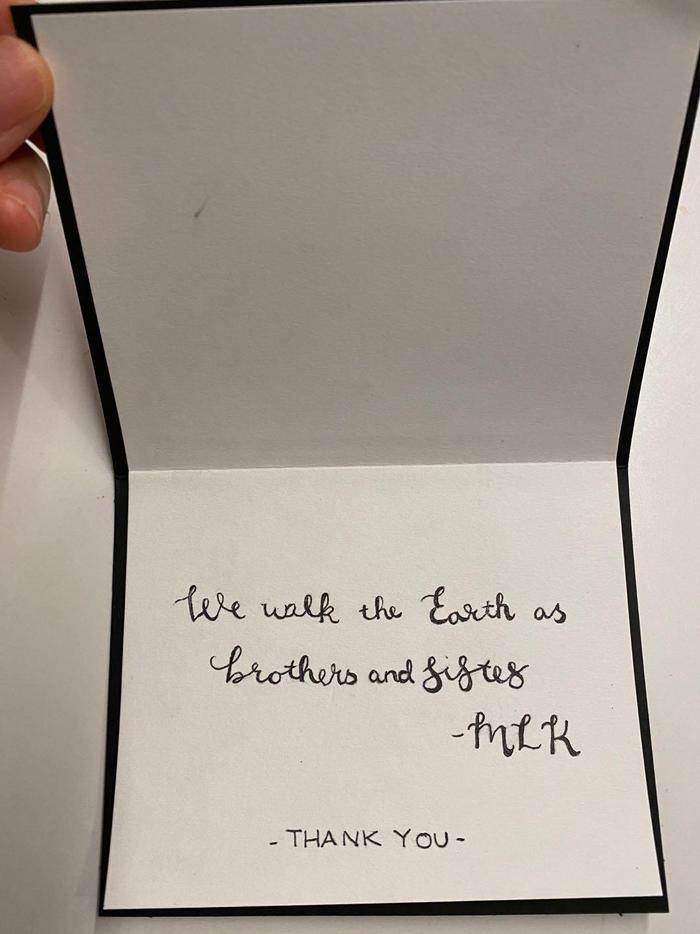 We walk the Earth as
brothers and sistes
-MLK
- THANK YOU -